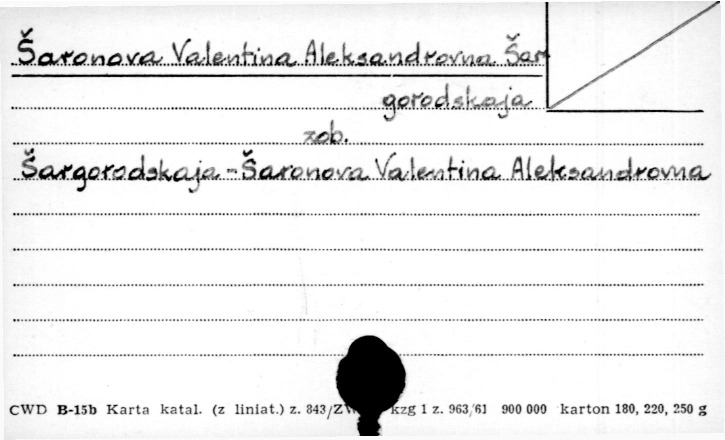 Šaronova Valentina Aleksandrovna Šar
gorodskaja
zob.
Šargorodskaja-Šaronova Valentina Aleksandrovna
CWD B-15b Karta katal. (z liniat.) z. 843/ZW kzg 1 z. 963/61 900 000 karton 180, 220, 250 g